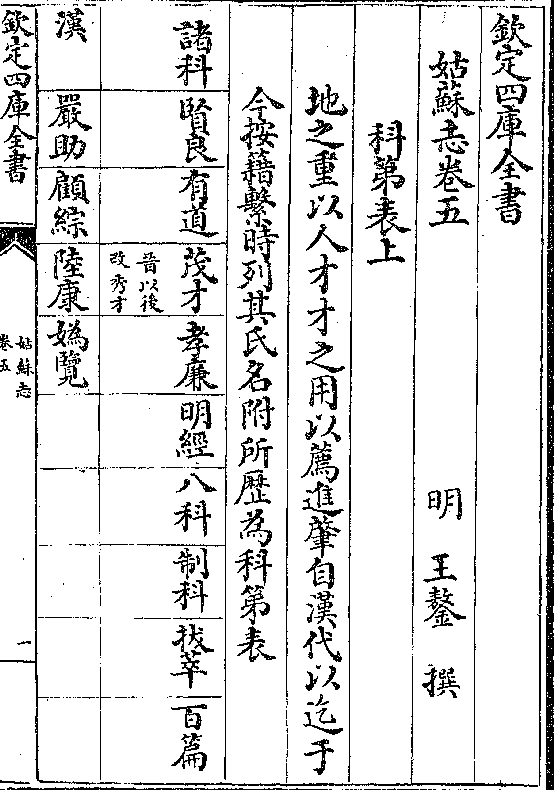 欽定四庫全書
姑蘇志卷五
明 王鏊 撰
科第表上
地之重以人才才之用以薦進肇自漢代以迄于
今按籍繫時列其氏名附所歴為科第表
諸科 賢良 有道 茂才 晉以後改秀才 孝廉 明經 八科 制科 拔萃 百篇
漢 嚴助 顧綜 陸康 媯覽
欽定四庫全書
姑蘇志
卷五
一